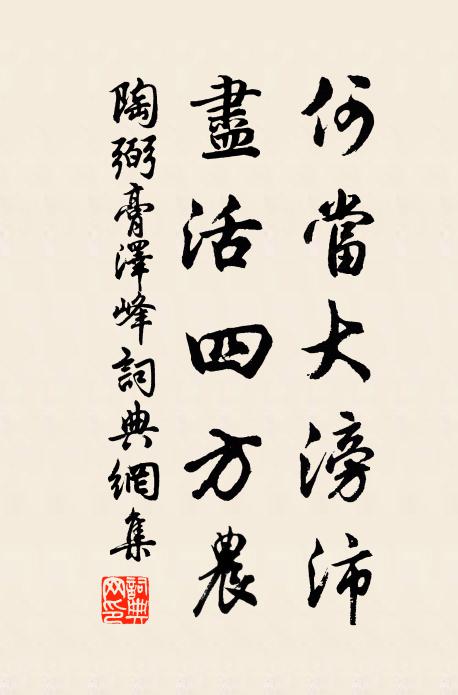 何當大滂沛
盡活四方農
陶弼膏澤峰詞典網集
詞典网印